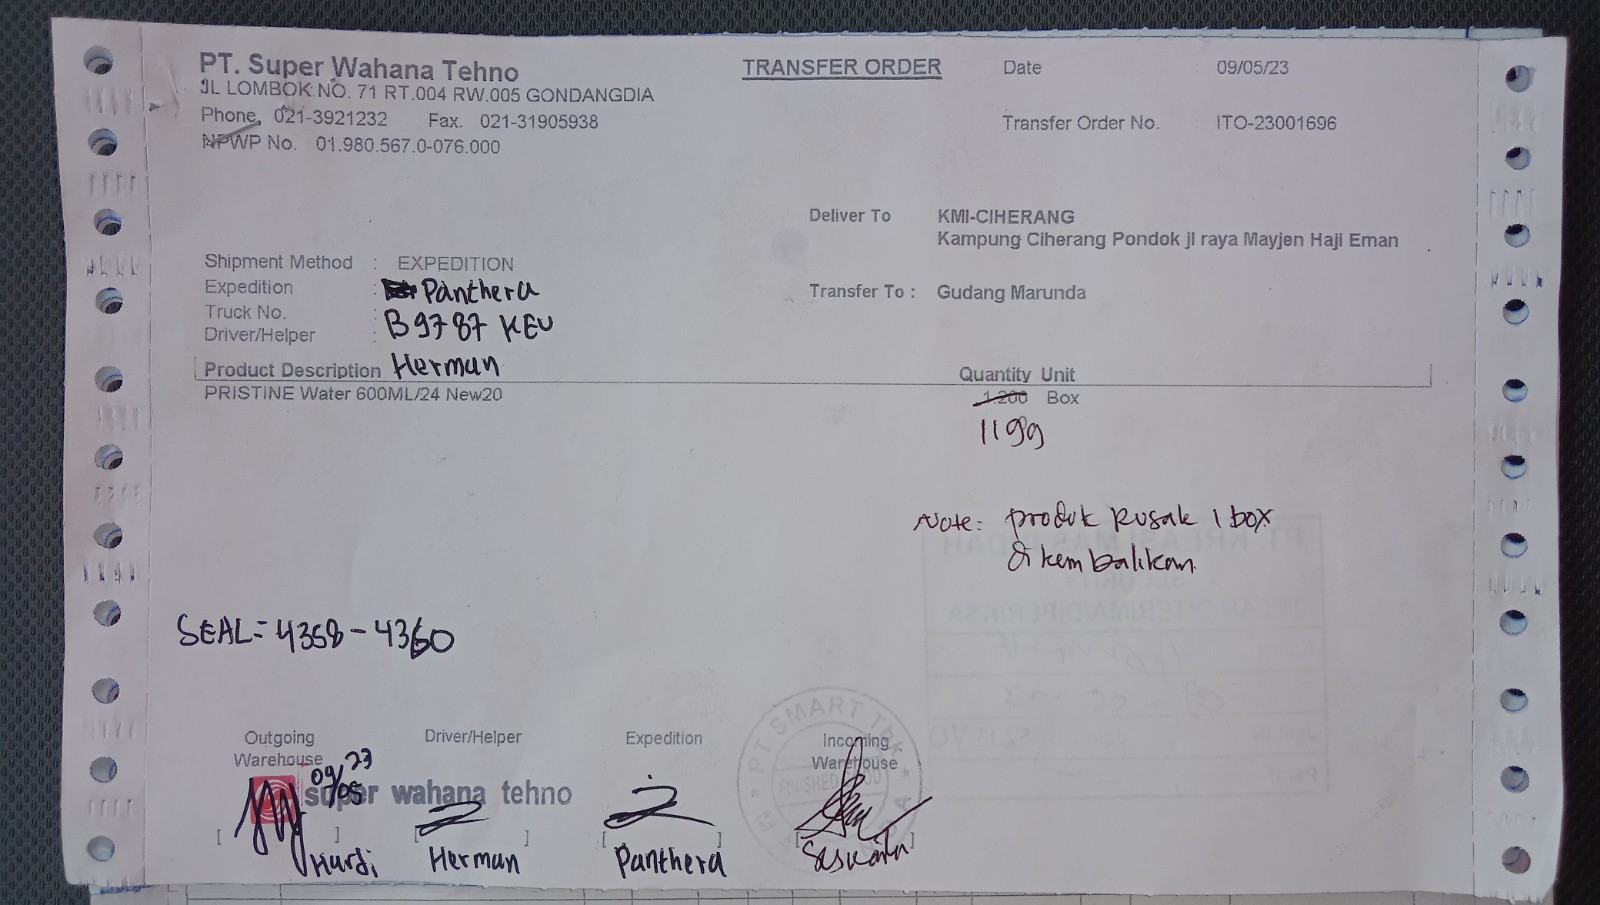 PT. Super Wahana Tehno
JL LOMBOK NO. 71 RT.004 RW.005 GONDANGDIA
Phone, 021-3921232 Fax. 021-31905938
NPWP No. 01.980.567.0-076.000
TRANSFER ORDER
Date 09/05/23
Transfer Order No. ITO-23001696
Deliver To KMI-CIHERANG
Kampung Ciherang Pondok jl raya Mayjen Haji Eman
Shipment Method : EXPEDITION
Expedition : Panthera
Truck No. : B 9787 KEU
Driver/Helper : Herman
Transfer To : Gudang Marunda
Product Description Quantity Unit
PRISTINE Water 600ML/24 New20 1.200 Box
1199
Note: produk Rusak 1 box
di kembalikan
SEAL = 4358 - 4360
Outgoing Warehouse
Driver/Helper
Expedition
Incoming Warehouse
09/05 23
super wahana tehno
PT SMART Tbk
FINISHED
[ ] [ ] [ ] [ ]
Hardi Herman Panthera